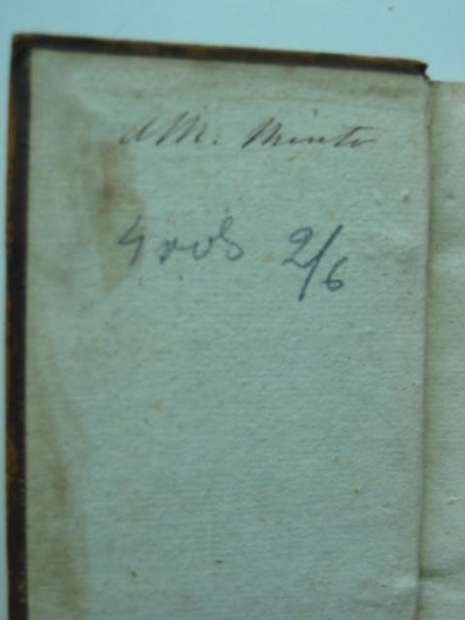 A.M. Minto
4 vols 2/6